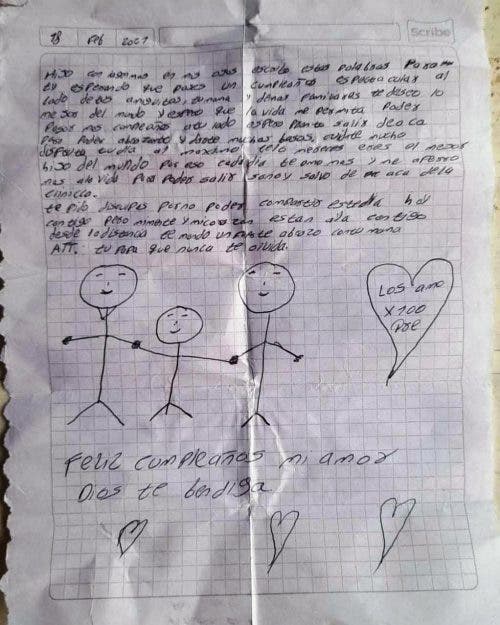 18 Feb 2021
Scribe
Hijo con lagrimas en mis ojos escribo estas palabras Para
esperando que pases un cumpleaños espectacular al
lado de tus amiguitos, tu mama y demas familiares te deseo lo
mejor del mundo y espero que la vida me permita Poder
Pasar mas cumpleaños a tu lado espero pronto salir de aca
Para Poder abrazarte y darte muchos besos, cuidate mucho
disfruta tu dia al maximo, te lo mereces eres el mejor
hijo del mundo Por eso cada dia te amo mas y me aferro
mas ala vida Para Poder salir sano y salvo de aca dela
clinica.
te pido disculpas por no poder compartir este dia hoy
contigo pero mi mente y mi corazon estan alla contigo
desde la distancia te mando un fuerte abrazo con tu mama
ATT. tu Papa que nunca te olvida.
LOS amo
X 100
Pre
Feliz cumpleaños mi amor
Dios te bendiga